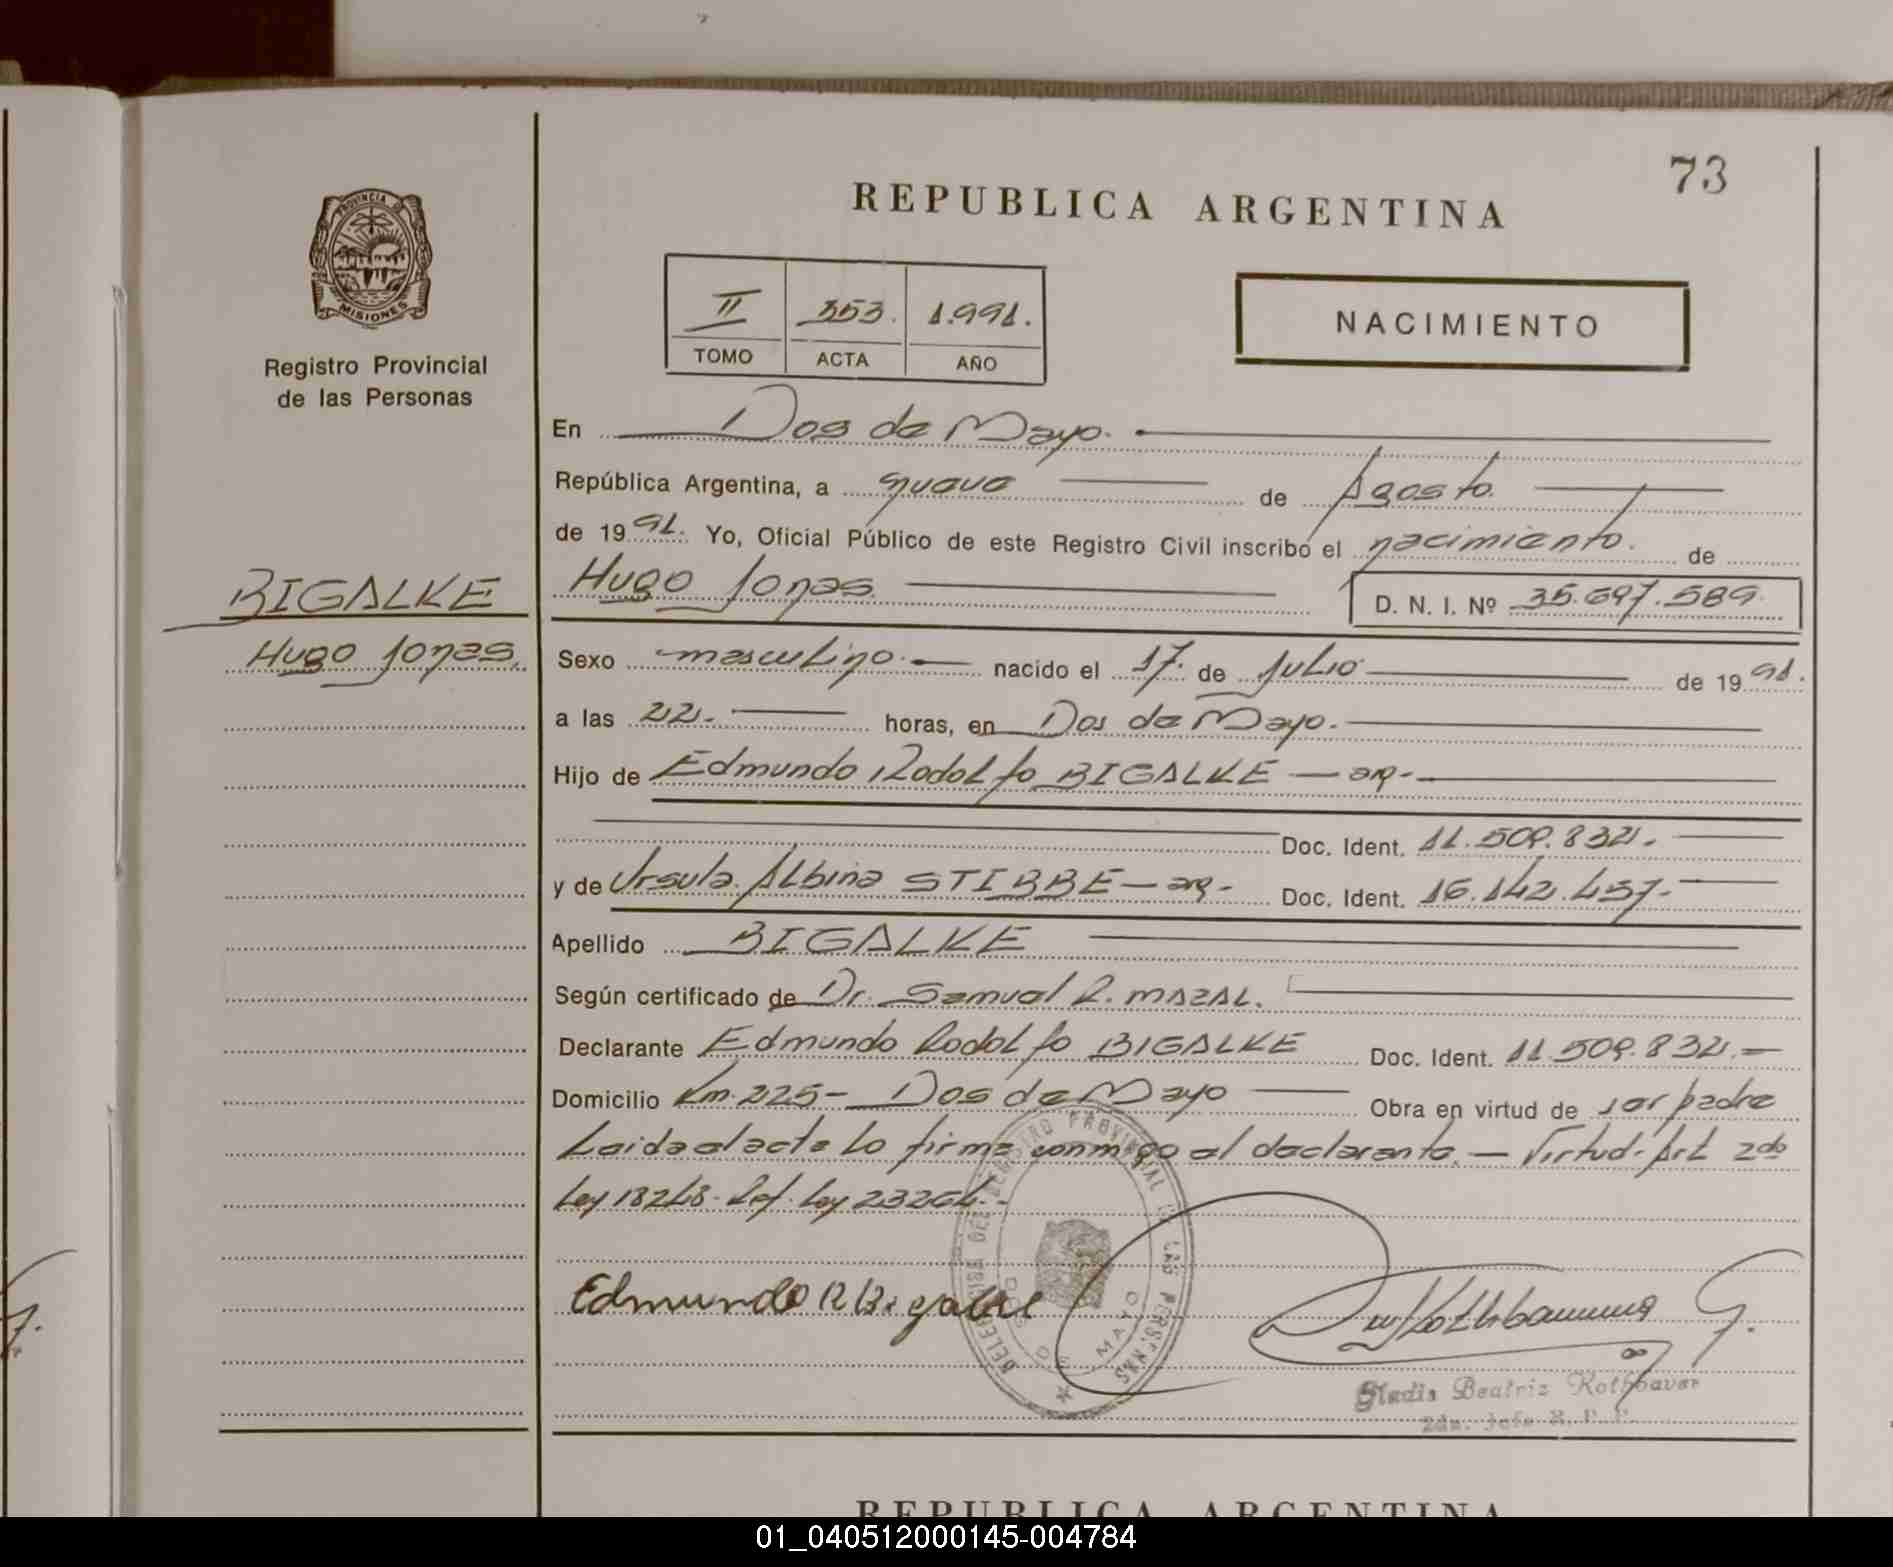 73
REPUBLICA ARGENTINA
PROVINCIA DE
MISIONES
Registro Provincial
de las Personas
II 353. 1.991.
TOMO ACTA AÑO
NACIMIENTO
En Dos de Mayo.
República Argentina, a nueve de Agosto.
de 1991. Yo, Oficial Público de este Registro Civil inscribo el nacimiento. de
BIGALKE
Hugo Jonas. D. N. I. Nº 35.697.589.
Hugo Jonas.
Sexo masculino. nacido el 17. de Julio de 1991.
a las 22. horas, en Dos de Mayo.
Hijo de Edmundo Rodolfo BIGALKE — arg.
Doc. Ident. 11.509.832.
y de Ursula Albina STIBBE — arg. Doc. Ident. 16.142.437.
Apellido BIGALKE
Según certificado de Dr. Samuel R. MAZAL.
Declarante Edmundo Rodolfo BIGALKE Doc. Ident. 11.509.832.
Domicilio Km. 225 - Dos de Mayo Obra en virtud de ser padre
Leida el acta lo firma conmigo el declarante. — Virtud. Art 2do
Ley 18248. Ref. Ley 23264.
DELEGACION DEL REGISTRO PROVINCIAL DE LAS PERSONAS
DOS DE MAYO
Edmundo R Bigalke
Gladis Beatriz Rothbauer
2da. Jefe R. P. P.
REPUBLICA ARGENTINA
01_040512000145-004784